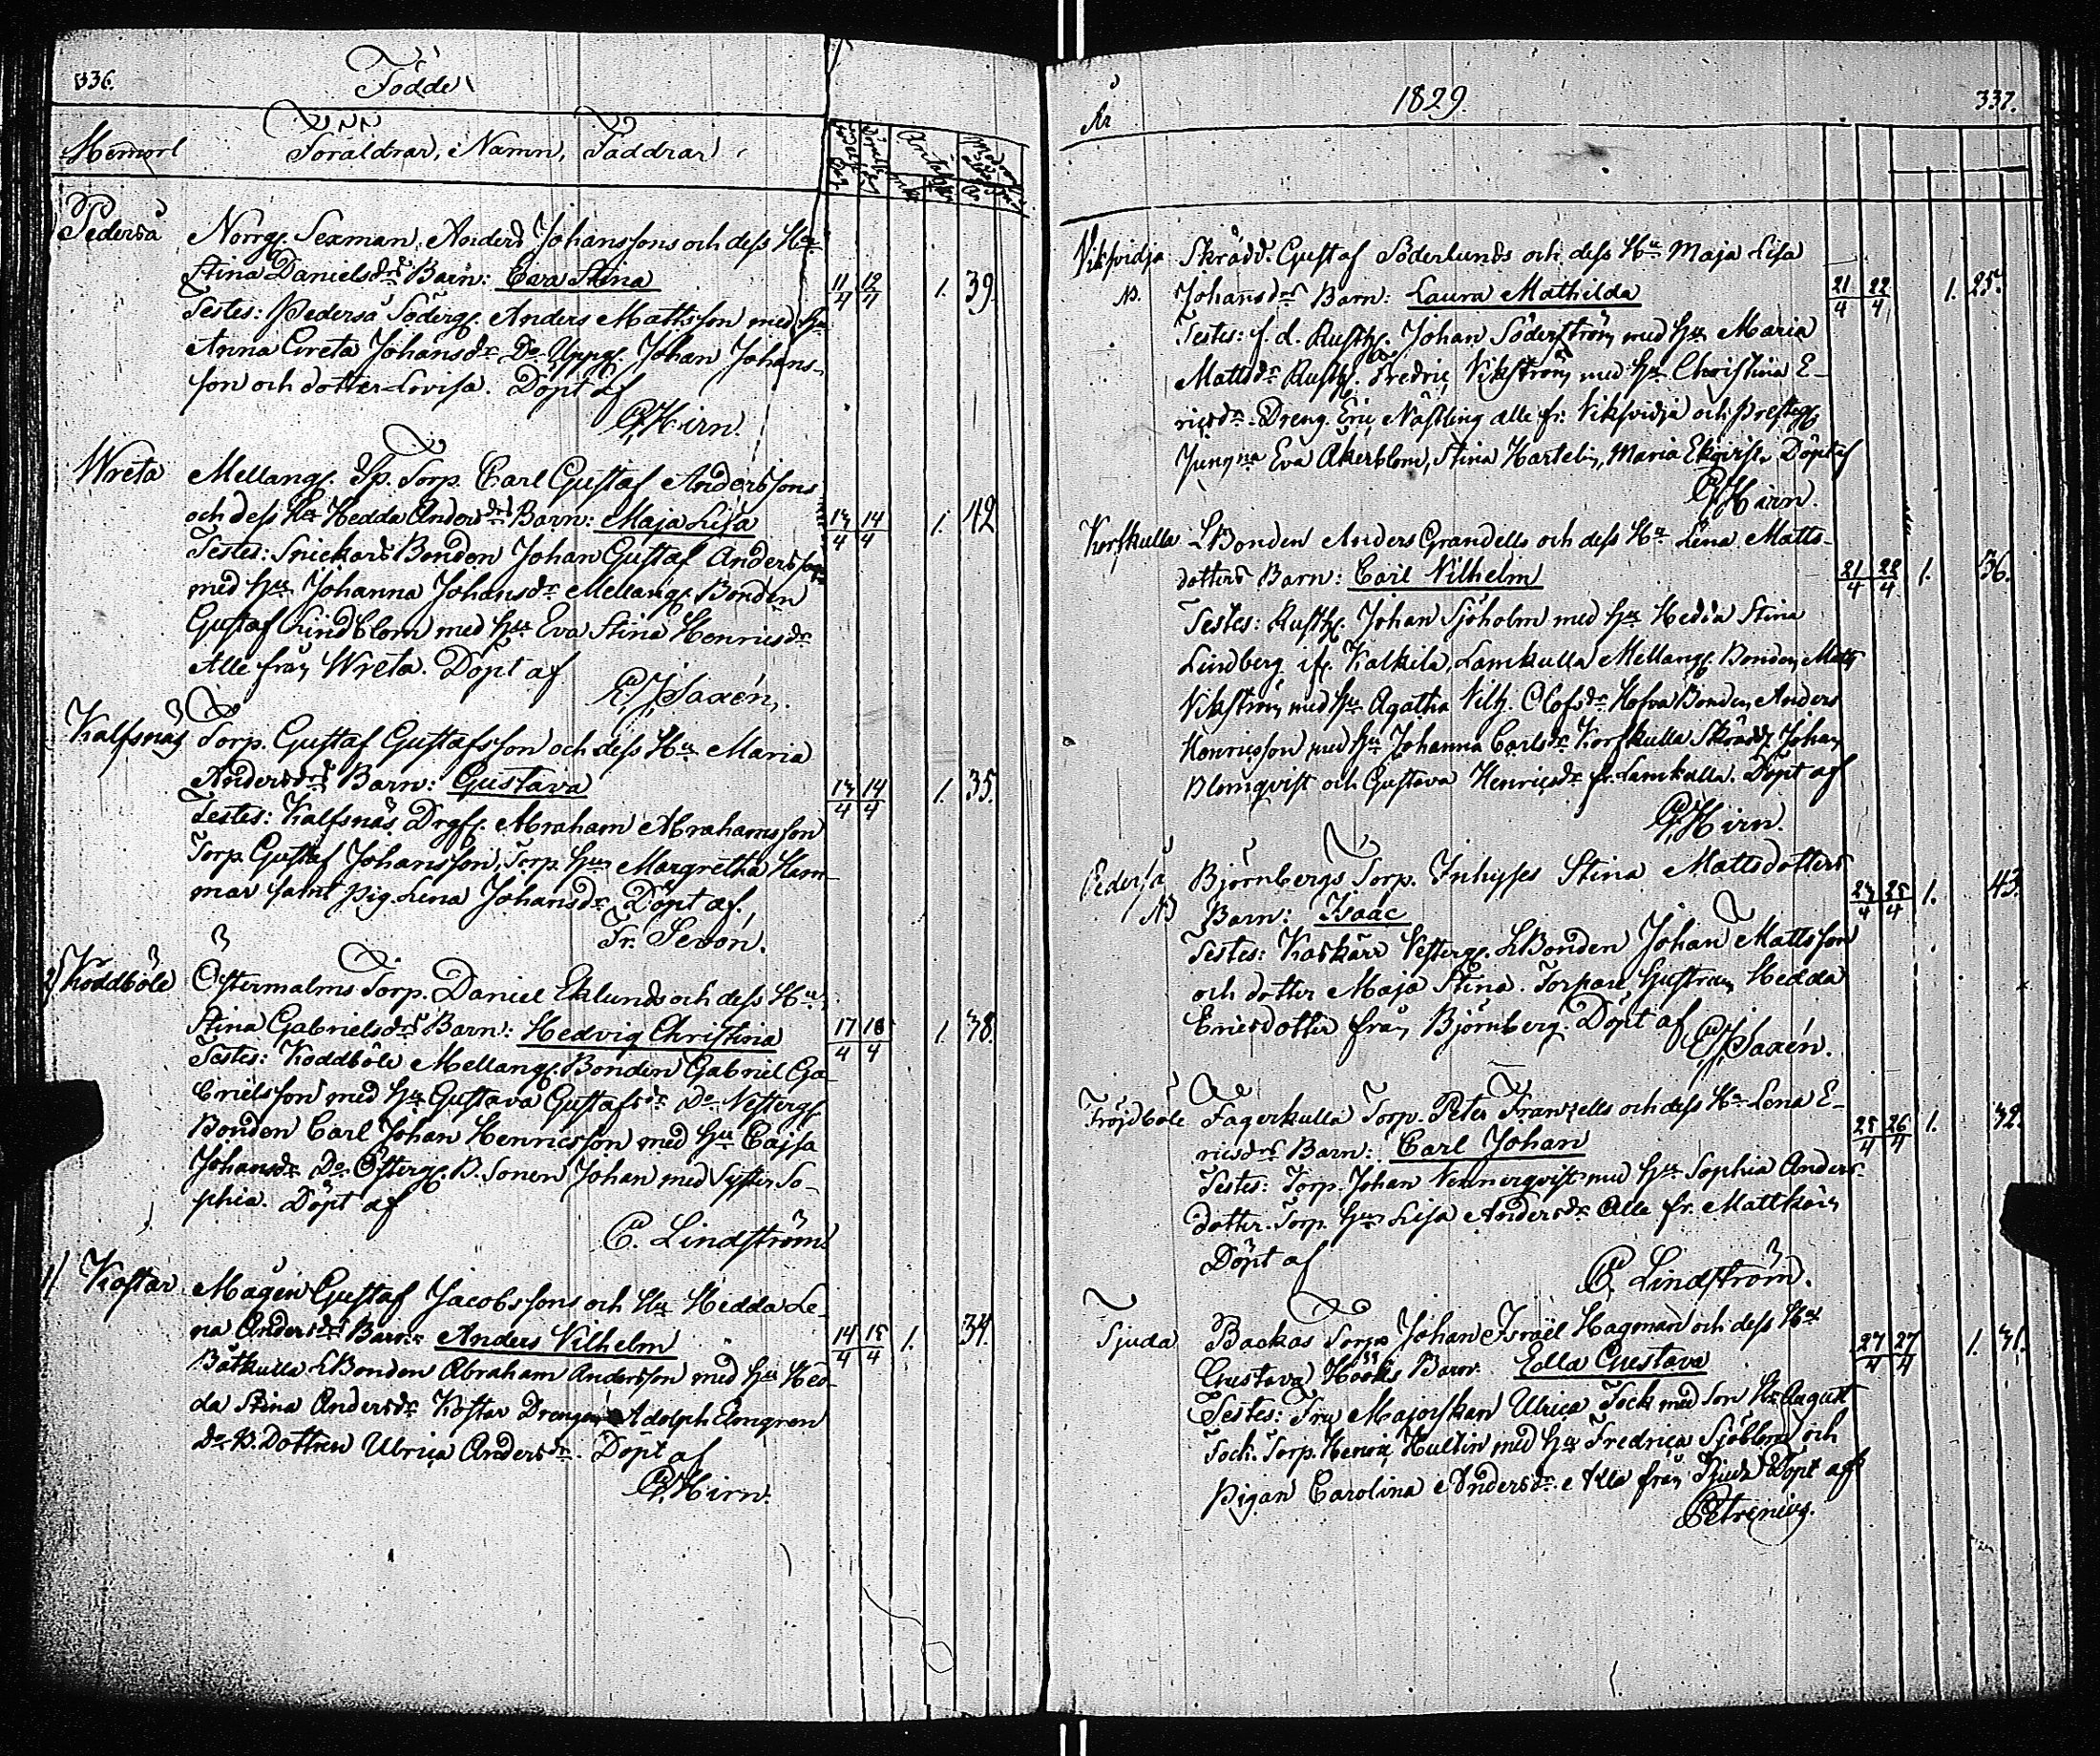 336.
Födde
Hemort
Föräldrar, Namn, Faddrar
Pederså
Norrg. Sexman, Anders Johanssons och dess Hu
Stina Danielsdrs Barn: Eva Stina 11/4 12/4 1. 39.
Testes: Pederså Söderg. Anders Mattsson med hu
Anna Greta Johansdr Do Uppg. Johan Johans-
son och dotter Lovisa. Döpt af
Hirn.
Wreta
Mellang. Sp. Torp. Carl Gustaf Anderssons
och dess Hu Hedda Andersdrs Barn: Maja Lisa 13/4 14/4 1. 42
Testes: Snickars Bonden Johan Gustaf Andersson
med hu Johanna Johansdr Mellang. Bonden
Gustaf Lindblom med hu Eva Stina Henricsdr
Alle från Wreta. Döpt af
Saxén.
Kalfsnäs
Torp. Gustaf Gustafsson och dess Hu Maria
Andersdrs Barn: Gustava 13/4 14/4 1. 35.
Testes: Kalfsnäs Drgf. Abraham Abrahamsson
Torp Gustaf Johansson, Torp. hu Margretha Ham-
mar samt pig. Lena Johansdr Döpt af.
Fr. Sevón.
Koddböle
Östermalms Torp. Daniel Eklunds och dess Hu
Stina Gabrielsdrs Barn: Hedvig Christina 17/4 18/4 1. 38.
Testes: Koddböle Mellang. Bonden Gabriel Ga-
brielsson med hu Gustava Gustafsdr Do Vesterg.
Bonden Carl Johan Henricsson med hu Cajsa
Johansdr Do Österg. B. Sonen Johan med Syster So-
phia. Döpt af
C. Lindström
Kostar
Mågen Gustaf Jacobssons och Hu Hedda Le-
na Andersdrs Barn: Anders Vilhelm 14/4 15/4 1. 34.
Båtkulla LBonden Abraham Andersson med hu Hed-
da Stina Andersdr Kostar Drengen Adolph Elmgren
Do B. Dottren Ulrica Andersdr. Döpt af
Hirn.
År
1829.
337.
Viksvidja
Skrädd. Gustaf Söderlunds och dess Hu Maja Lisa
Johansdrs Barn: Laura Mathilda 21/4 22/4 1. 25.
Testes: f. d. Rusth. Johan Söderström med hu Maria
Mattsdr Rusth. Fredric Vikström med hu Christina E-
ricsdr. Dreng. Eric Näsling alle fr. Viksvidja och Presteg.
Jungna Eva Åkerblom, Stina Hartelin, Maria Döpt af
Hirn.
Korskulla
LBonden Anders Grandells och dess Hu Lena Matts-
dotters Barn: Carl Vilhelm 21/4 22/4 1. 36.
Testes: Rusth. Johan Sjöholm med hu Hedda Stina
Lindberg ifr. Kalkila, Lamkulla Mellang. Bonden Matts
Vikström med hu Agatha Vilh. Olofsdr Hofva Bonden Anders
Henricsson med hu Johanna Carlsdr Korskulla Skrädd. Johan
Blomqvist och Gustava Henricsdr fr. Lamkulla. Döpt af
Hirn.
Pederså
Björnbergs Torp. Inhyses Stina Mattsdotters 23/4 25/4 1. 43.
NB Barn: Isaac
Testes: Karkärr Vesterg. LBonden Johan Mattsson
och dotter Maja Stina. Torpare Hustrun Hedda
Ericsdotter från Björnberg. Döpt af
Saxén.
Fröjdböle
Fagerkulla Torp. Peter Franzells och dess Hu Lena E-
ricsdrs Barn: Carl Johan 25/4 26/4 1. 32.
Testes: Torp. Johan Vennerqvist med hu Sophia Anders-
dotter. Torp. hu Lisa Andersdr Alle fr. Mattkärr
Döpt af
C. Lindström.
Tjuda
Backas Torp. Johan Israël Hagman och dess Hu
Gustava Hööks Barn Edla Gustava 27/4 27/4 1. 31.
Testes: Fru Majorskan Ulrica Fock med Son Hr August
Fock. Torp. Henric Hultin med hu Fredrica Sjöblom och
Pigan Carolina Andersdr. Alle från Tjuda Döpt af
Petrenius.